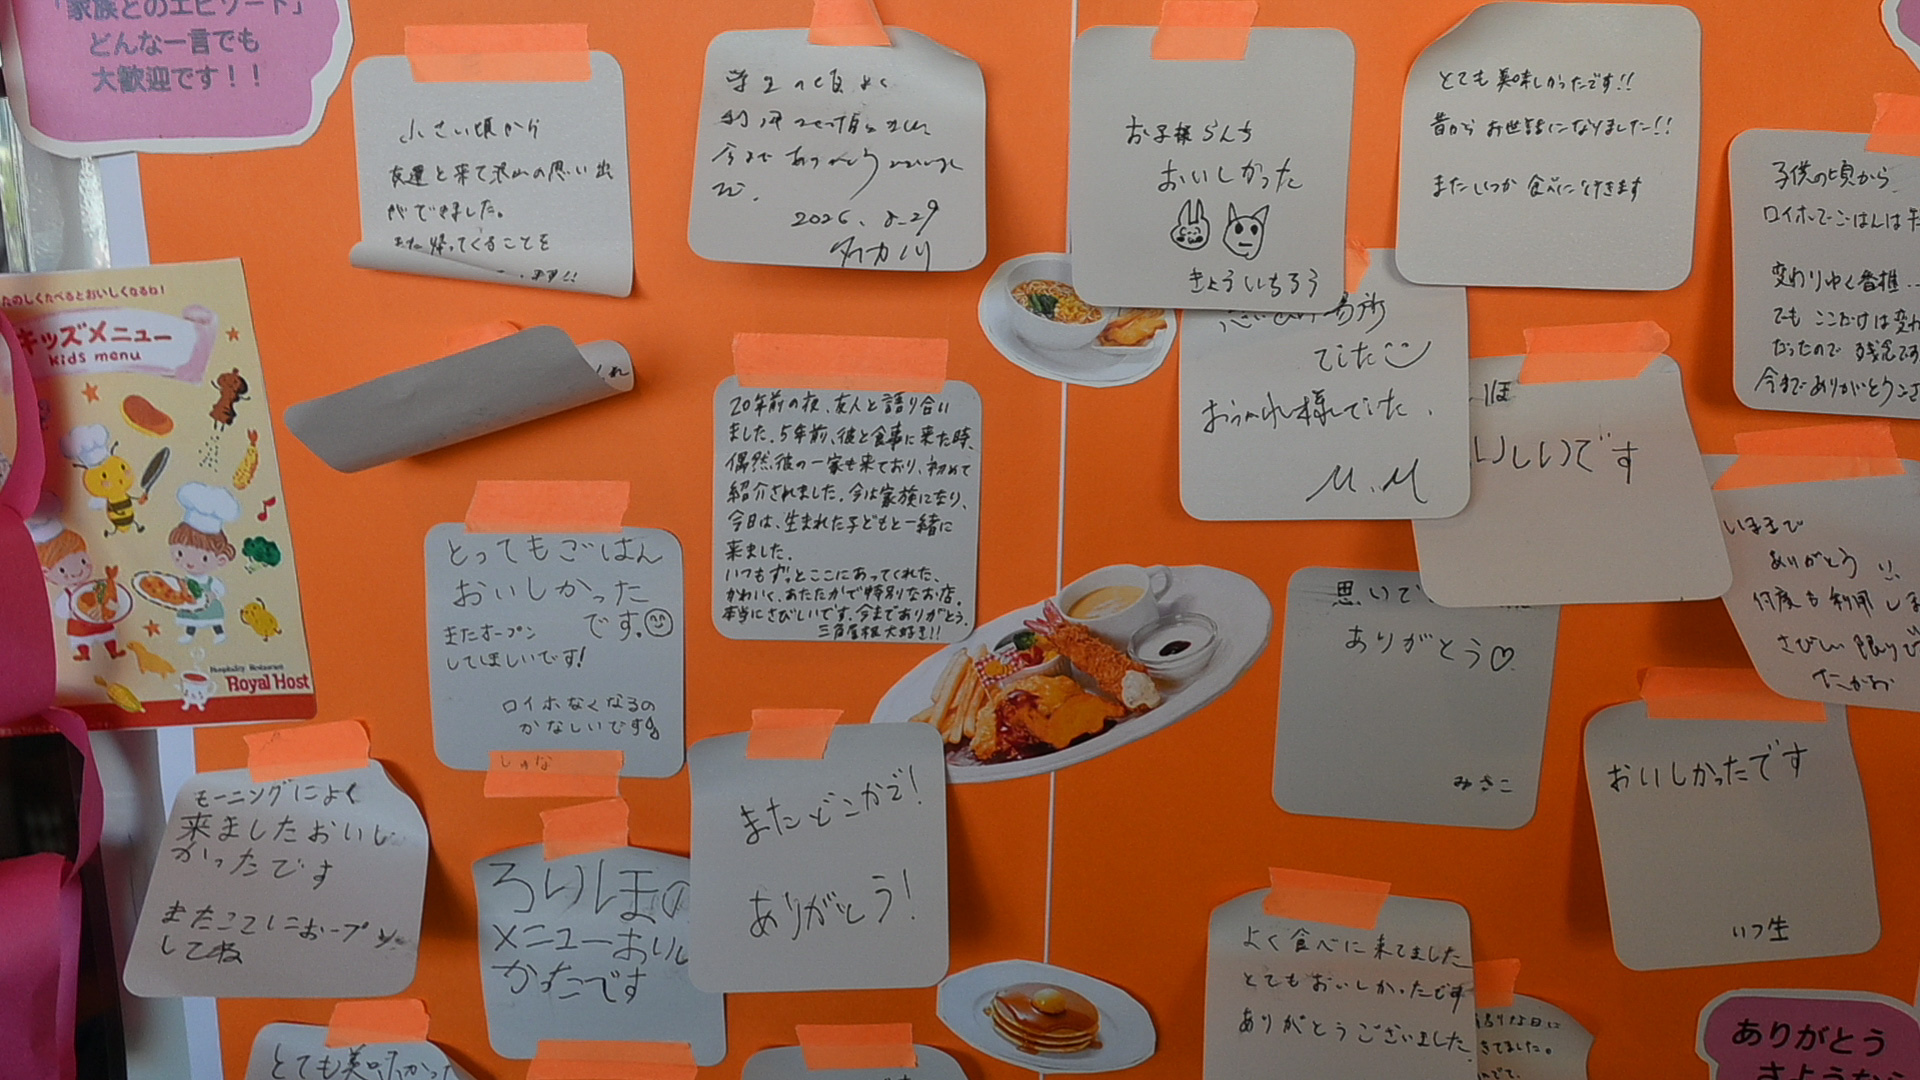 「家族とのエピソード」
どんな一言でも
大歓迎です！！
小さい頃から
友達と来て沢山の思い出
ができました。
また帰ってくることを
ます!!
学生の頃よく
利用させて頂きました
今までありがとうございまし
た。
2026.8.29
お子様らんち
おいしかった
きょういちろう
とても美味しかったです!!
昔からお世話になりました!!
またいつか食べに行きます
子供の頃から
ロイホでごはんは
変わりゆく
でもここだけは変わ
だったので残念です
今までありがとうござ
たのしくたべるとおいしくなるね！
キッズメニュー
kids menu
Hospitality Restaurant
Royal Host
場所
でした
おつかれ様でした.
M.M
ほ
いしいです
20年前の夜、友人と語り合い
ました。5年前、彼と食事に来た時、
偶然、彼の一家も来ており、初めて
紹介されました。今は家族になり、
今日は、生まれた子どもと一緒に
来ました。
いつもずっとここにあってくれた、
かわいく、あたたかで特別なお店。
本当にさびしいです。今までありがとう。
三角屋根大好き!!
とってもごはん
おいしかった
です。
またオープン
してほしいです!
ロイホなくなるの
かなしいです
しゅな
いままで
ありがとう!!
何度も利用しま
さびしい限りで
たかお
思いで
ありがとう♡
みさこ
おいしかったです
いつ生
モーニングによく
来ましたおいし
かったです
またここでにおープン
してね
ろいほの
メニューおいし
かたです
またどこかで!
ありがとう!
よく食べに来てました
とてもおいしかったです
ありがとうございました
きてました。
とても美味かっ
ありがとう
さようなら